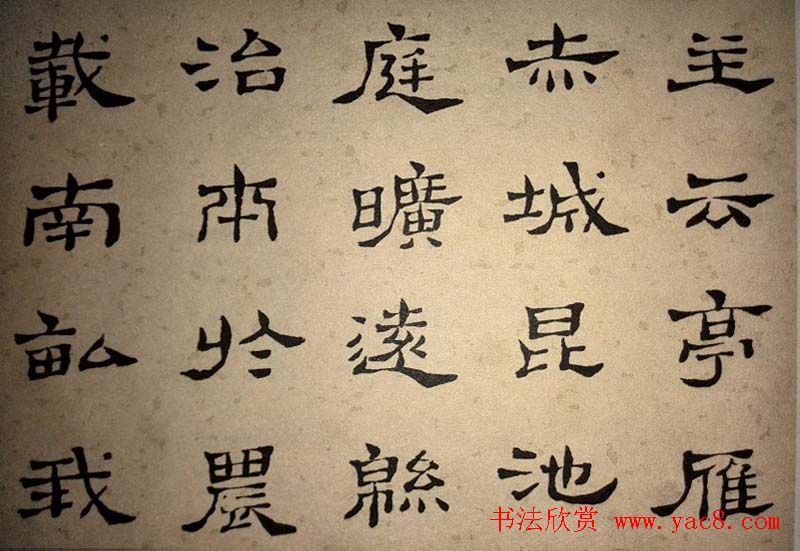 主云亭雁
赤城昆池
庭曠遠緜
治本於農
載南畝我
书法欣赏 www.yac8.com